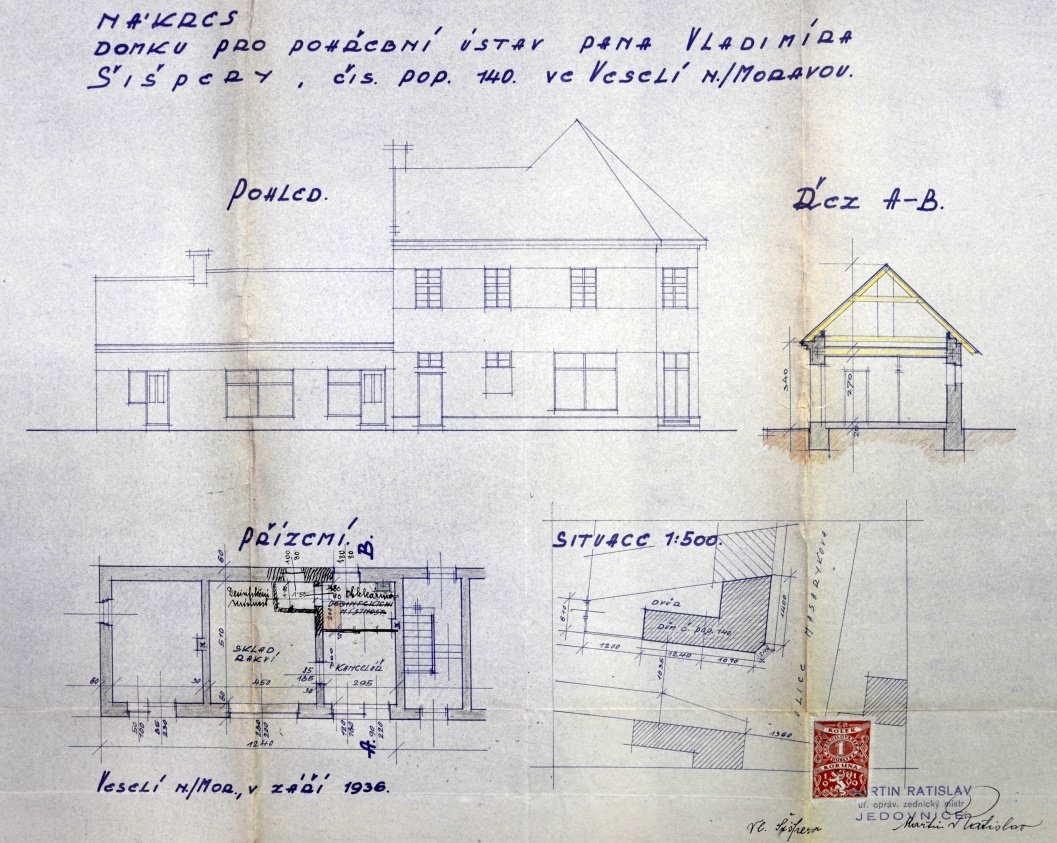 NÁKRES
DOMKU PRO POHŘEBNÍ ÚSTAV PANA VLADIMÍRA
ŠIŠPERY, ČÍS. POP. 140. VE VESELÍ N./MORAVOU.
POHLED.
ŘEZ A-B.
340
270
PŘÍZEMÍ.
B.
Desinfekční
místnost
DESINFEKČNÍ
MÍSTNOST
510
SKLAD
RAKVÍ
KANCELÁŘ
60
30
450
295
60
1240
A.
SITUACE 1:500.
DVŮR
DŮM Č. POP. 140
1200
1240
1400
1360
ULICE MASARYKOVA
VESELÍ N./MOR., V ZÁŘÍ 1936.
KOLEK
1
KORUNA
MARTIN RATISLAV
úř. opráv. zednický mistr
JEDOVNICE
Vl. Šišpera
Martin Ratislav